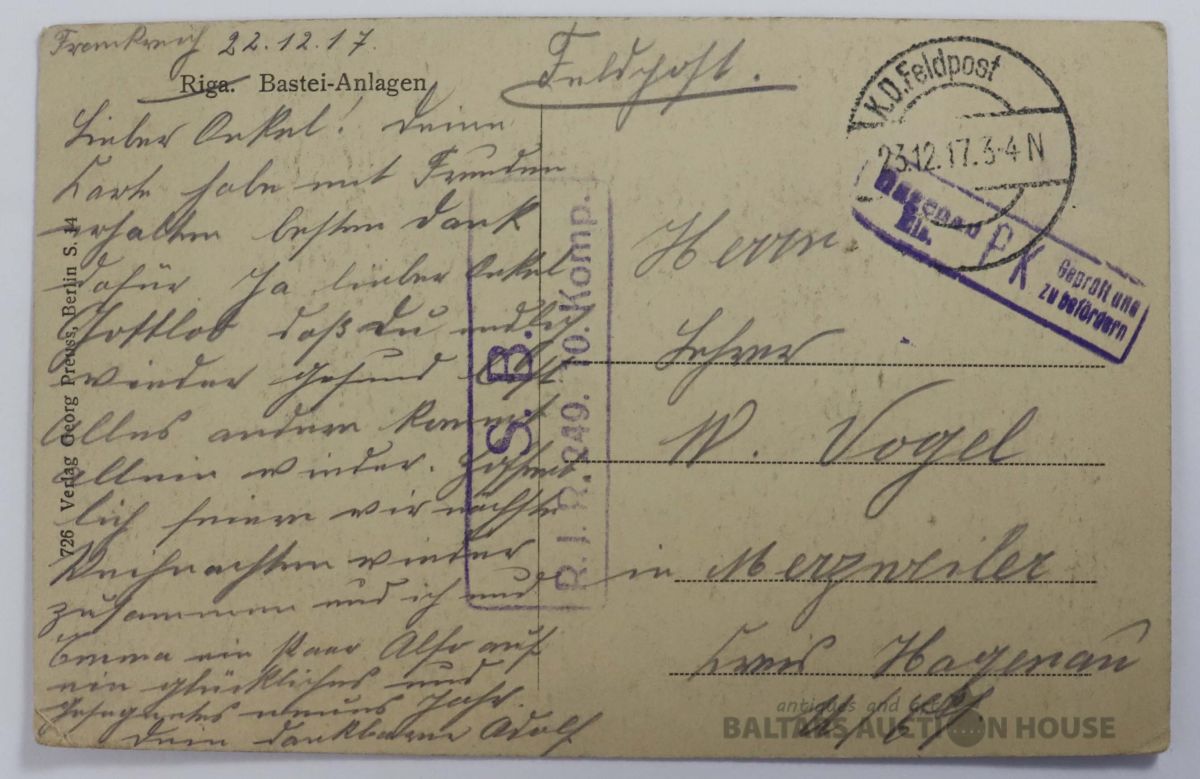 Frankreich 22.12.17.
Riga. Bastei-Anlagen
Feldpost.
Lieber Onkel! Deine
Karte habe mit Freuden
erhalten besten Dank
dafür Ja lieber Onkel
Gottlob daß Du endlich
wieder gesund bist
Alles andere kommt
allein wieder. Hoffent
lich feiern wir nächste
Weihnachten wieder
zusammen und ich und
Emma ein Paar Also auf
ein glückliches und
gesegnetes neues Jahr.
Dein dankbarer Adolf
726 Verlag Georg Preuss, Berlin S. 14
S. B.
R. J. R. 249. 10. Komp.
K.D.Feldpost
23.12.17.3-4 N
Hagenau
Els.
PK
Geprüft und
zu befördern
Herrn
Lehrer
W. Vogel
in Merzweiler
Kreis Hagenau
antiques and art
BALTARS AUCTION HOUSE